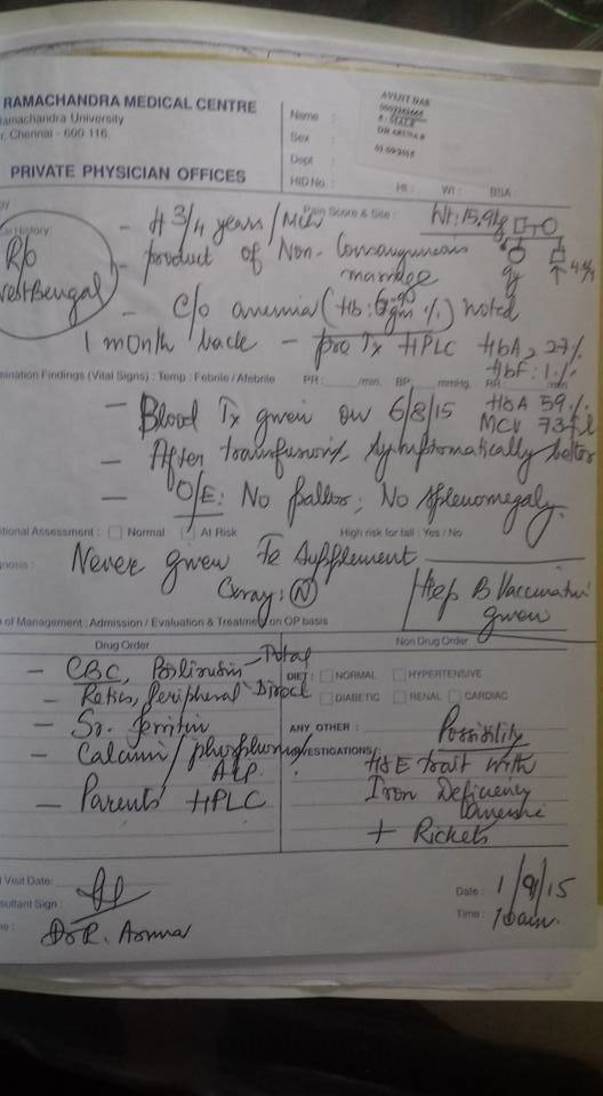 RAMACHANDRA MEDICAL CENTRE
amachandra University
Chennai - 600 116.
PRIVATE PHYSICIAN OFFICES
Name :
Sex :
Dept :
HID No. : Ht : Wt : BSA :
History:
Pain Score & Site :
Wt: 15.9kg
R/o
West Bengal
- 4 3/4 years / Mch
- product of Non-Consanguineous
marriage
9y
- C/o anemia (Hb: 6 gm %) noted
1 month back - pre Tx HPLC HbA2 27%
HbF: 1%
mination Findings (Vital Signs) : Temp : Febrile / Afebrile PR: /min. BP: mmHg. RR: /min
HbA 59%
MCV 73fl
- Blood Tx given on 6/8/15
- After transfusion, symptomatically better
- O/E: No pallor; No splenomegaly.
tional Assessment : Normal At Risk High risk for fall : Yes / No
gnosis :
Never given Fe Supplement
Cxray: N
Hep B Vaccination
given
of Management : Admission / Evaluation & Treatment on OP basis
Drug Order
Non Drug Order
- CBC, Bilirubin - Total
Direct
- Retics, Peripheral
- Sr. ferritin
- Calcium / phosphorus
ALP.
- Parents' HPLC
DIET : NORMAL HYPERTENSIVE
DIABETIC RENAL CARDIAC
ANY OTHER :
INVESTIGATIONS :
Possibility
HbE trait with
Iron Deficiency
anaemia
+ Rickets
Visit Date:
sultant Sign :
Dr R.
Date : 1/9/15
Time : 10am.